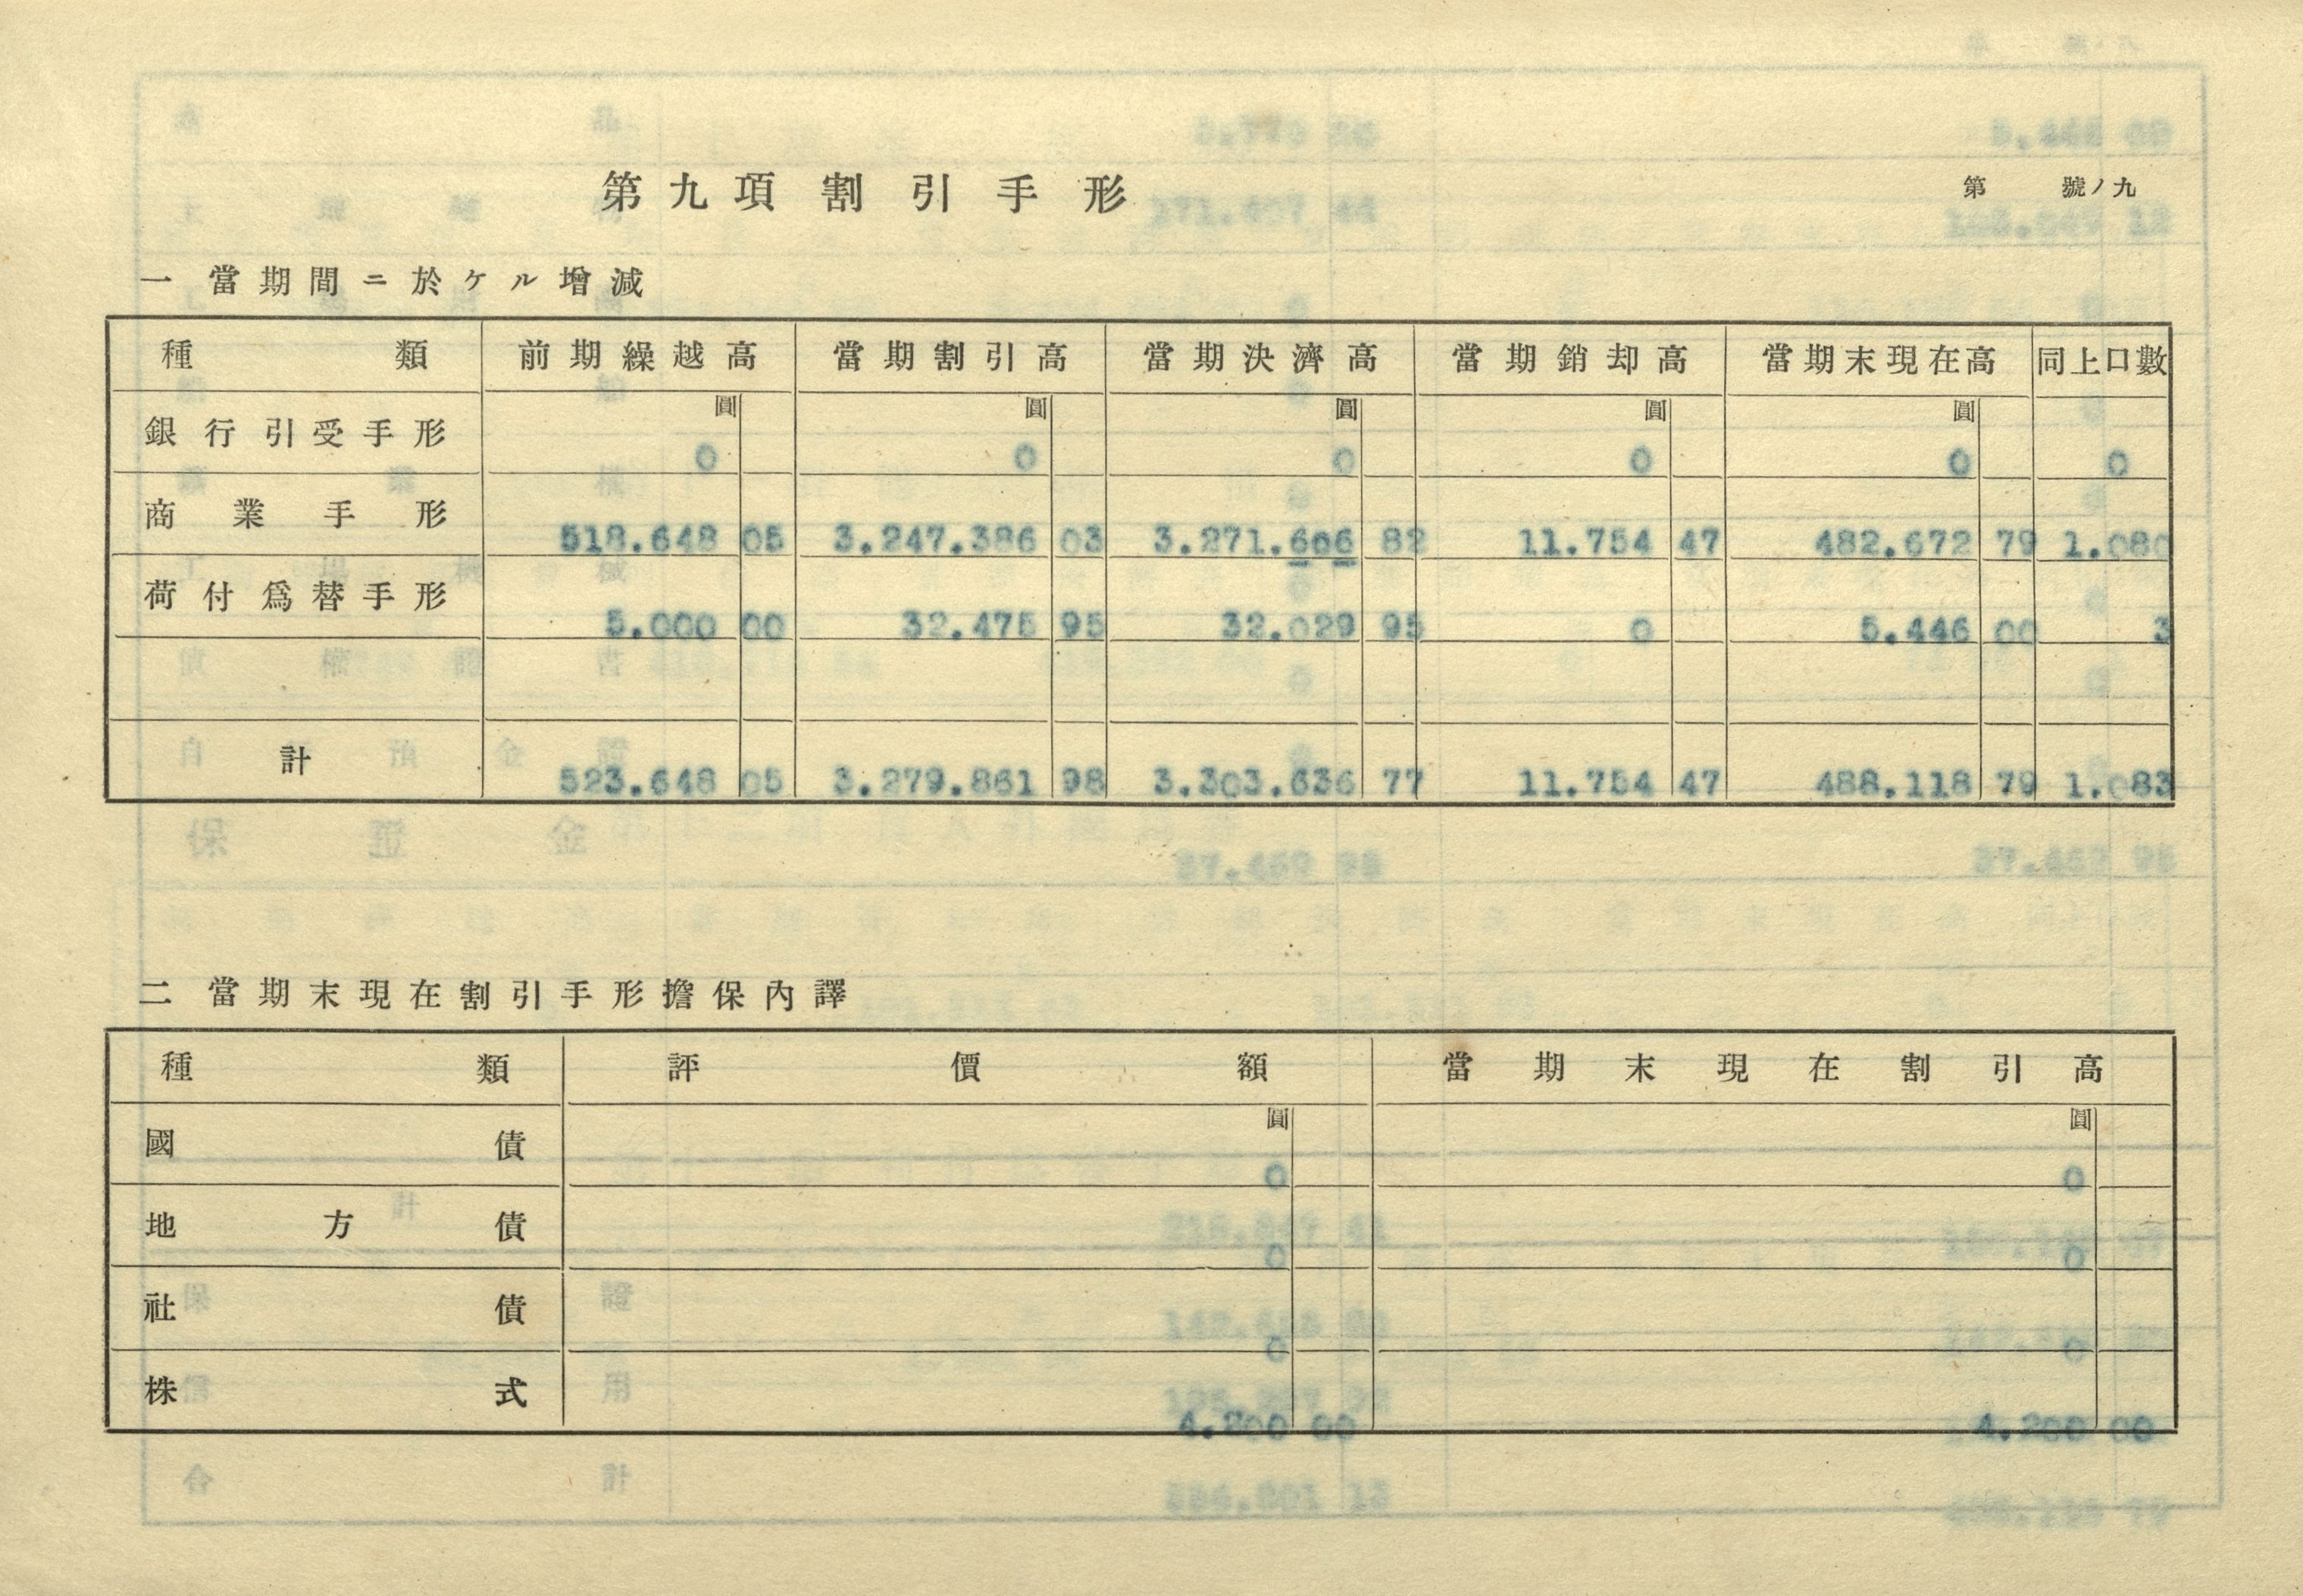 第九項 割引手形
第 號ノ九
一 當期間ニ於ケル增減
種類 前期繰越高 當期割引高 當期決濟高 當期銷却高 當期末現在高 同上口數
圓 圓 圓 圓 圓
銀行引受手形 0 0 0 0 0 0
商業手形 518.648 05 3.247.386 03 3.271.606 82 11.754 47 482.672 79 1.080
荷付爲替手形 5.000 00 32.475 95 32.029 95 0 5.446 00 3
計 523.648 05 3.279.861 98 3.303.636 77 11.754 47 488.118 79 1.083
二 當期末現在割引手形擔保內譯
種類 評價額 當期末現在割引高
圓 圓
國債 0 0
地方債 0 0
社債 0 0
株式 4.200 00 4.200 00